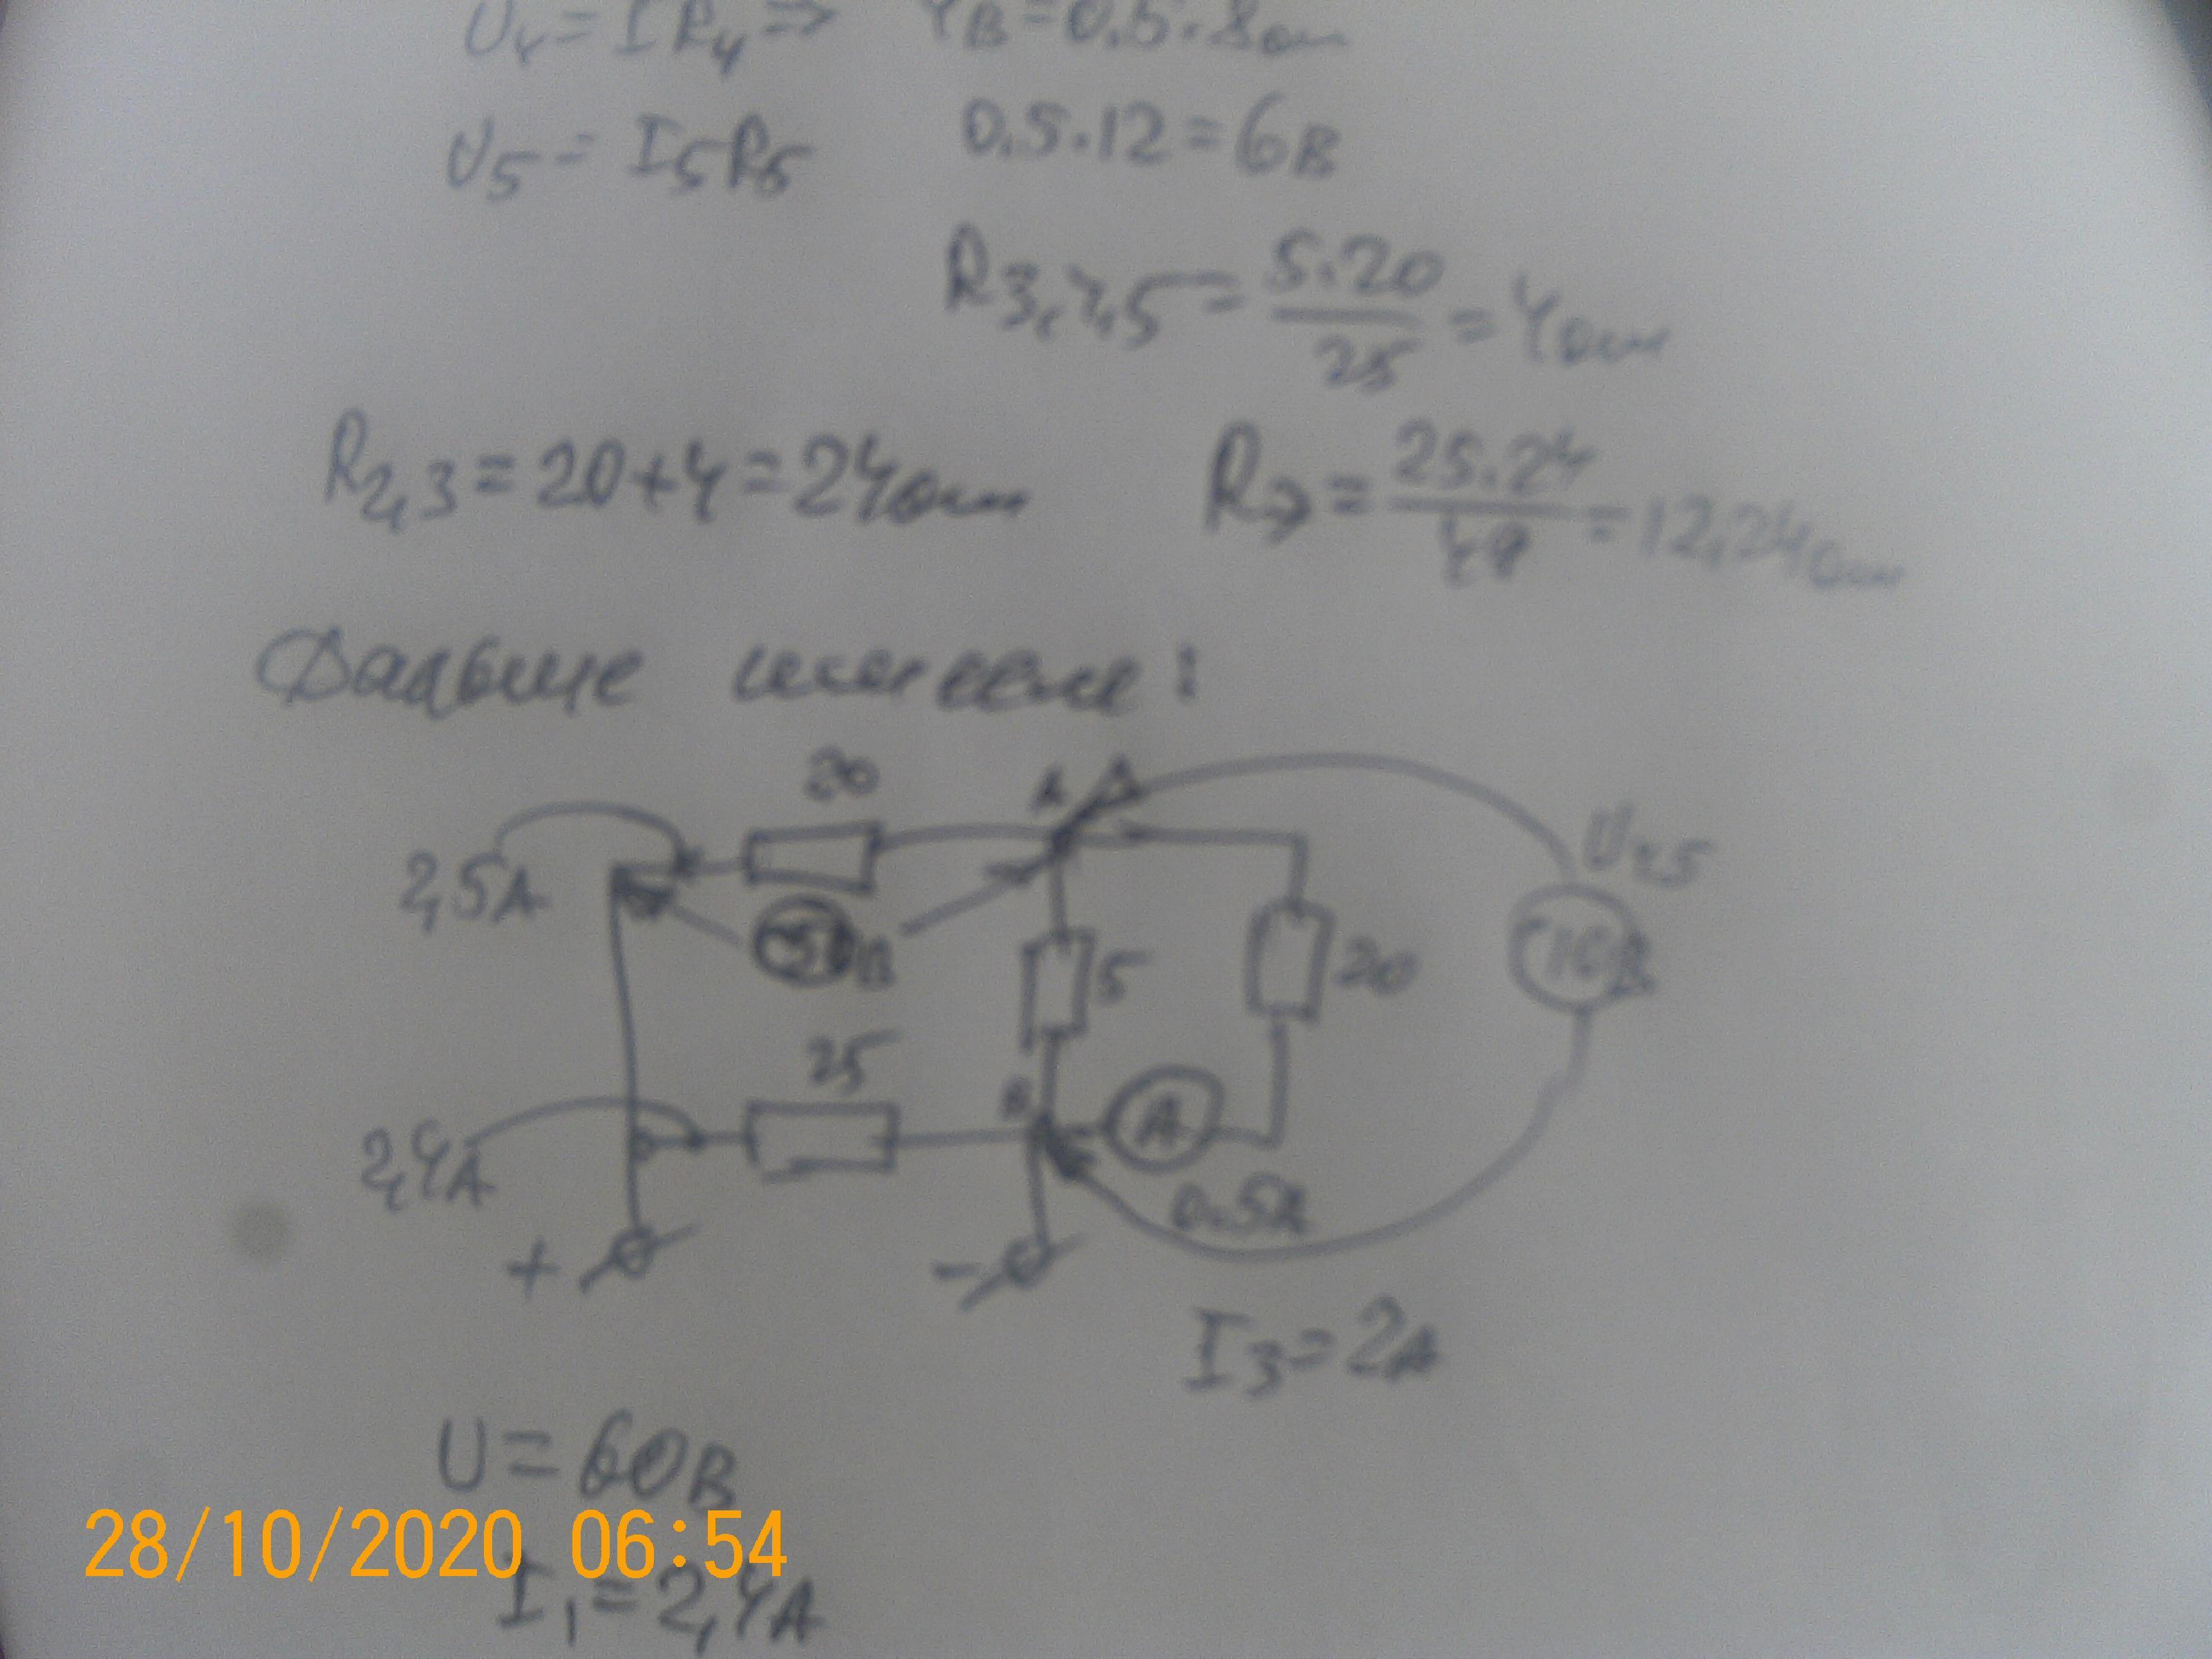 U4 = I R4 => 4В = 0.5·8ом
U5 = I5R5 0.5·12=6В
R3,4,5 = 5·20/25 = 4ом
R2,3 = 20+4=24ом Rэ = 25·24/49 = 12,24Ом
Дальше
20 A
U4,5
2,5А
50В 5 20 10В
25
B
2,4А A
0.5А
+ -
I3=2А
U=60В
28/10/2020 06:54
I1=2,4А